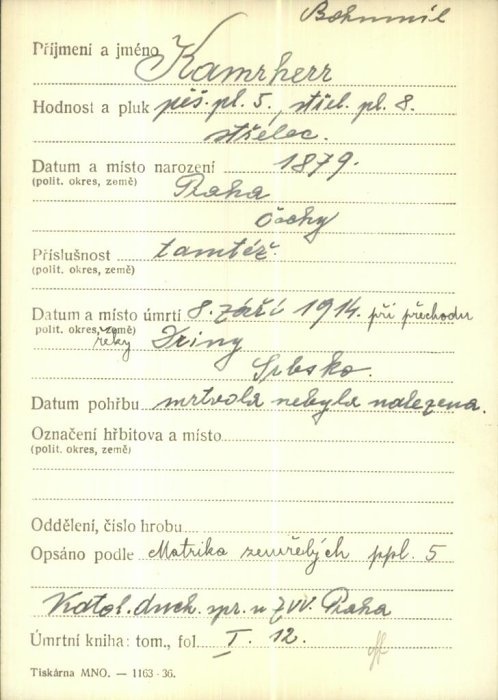 Bohumil
Příjmení a jméno Kamrherr
Hodnost a pluk pěš. pl. 5., střel. pl. 8.
střelec.
Datum a místo narození 1879.
(polit. okres, země) Praha
Čechy
Příslušnost tamtéž.
(polit. okres, země)
Datum a místo úmrtí 8. září 1914. při přechodu
polit. okres, země) řeky Driny
Srbsko.
Datum pohřbu mrtvola nebyla nalezena.
Označení hřbitova a místo
(polit. okres, země)
Oddělení, číslo hrobu
Opsáno podle Matrika zemřelých ppl. 5
Katol. duch. spr. u ZVV. Praha
Úmrtní kniha: tom., fol. I. 12.
Tiskárna MNO. — 1163-36.